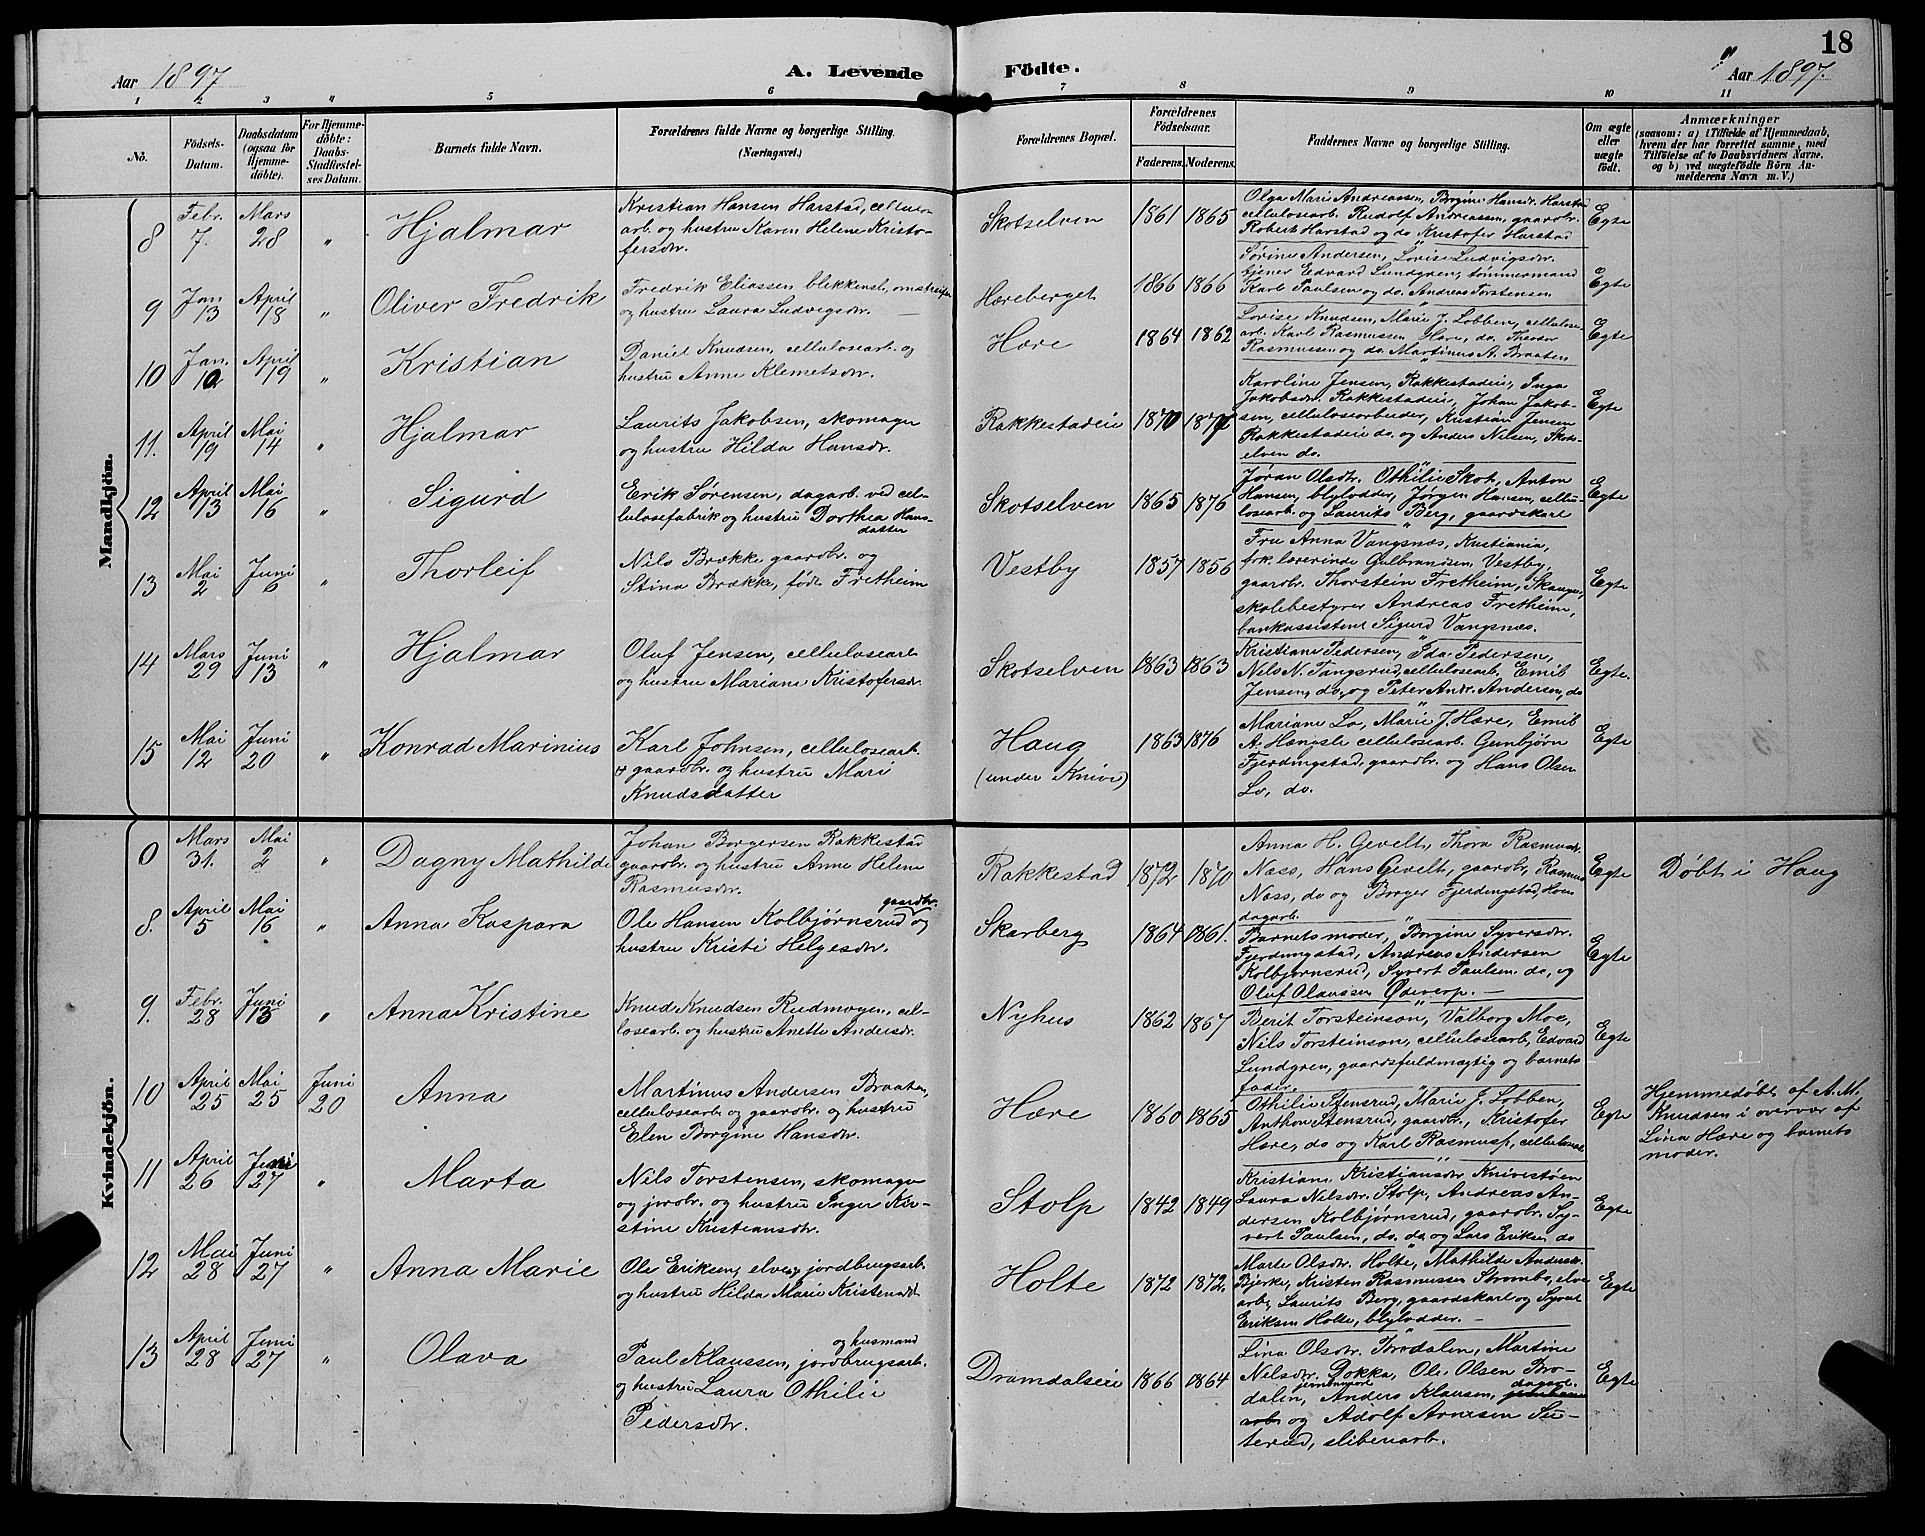 18
Aar 1897
A. Levende
Födte.
" Aar 1897.
1 2 3 4 5 6 7 8 9 10 11
No.
Födsels-
Datum.
Daabsdatum
(ogsaa for
Hjemme-
döbte).
For Hjemme-
döbte:
Daabs-
Stadfæstel-
ses Datum.
Barnets fulde Navn.
Forældrenes fulde Navne og borgerlige Stilling.
(Næringsvei.)
Forældrenes Bopæl.
Forældrenes
Födselsaar.
Faderens. Moderens.
Faddernes Navne og borgerlige Stilling.
Om ægte
eller
uægte
födt.
Anmærkninger
(saasom: a) i Tilfælde af Hjemmedaab,
hvem der har forrettet samme, med
Tilföielse af to Daabsvidners Navne,
og b) ved uægtefödte Börn An-
melderens Navn m. V.)
Mandkjön.
8 Febr. 7. Mars 28 " Hjalmar
Kristian Hansen Harstad, cellulose
arb. og hustru Karen Helene Kristo-
fersdr.
Skotselven 1861 1865
Olga Marie Andreassen, Borgine Hansdr. Harstad
cellulosearb. Rudolf Andreassen, gaardbr.
Robert Harstad og do Kristofer Harstad
Egte
9 Jan 13 April 18 " Oliver Fredrik
Fredrik Eliassen blikkensl. omstreifer
og hustru Laura Ludvigsdr. —
Hæreberget 1866 1866
Sörine Andersen, Lovise Ludvigsdr.
tjener Edvard Lundgren, tømmermand
Karl Paulsen og do. Andreas Torstensen.
Egte
10 Jan. 10 April 19 " Kristian
Daniel Knudsen, cellulosearb. og
hustru Anne Klemetsdr.
Hære 1864 1862
Lovise Knudsen, Marie J. Lobben, cellulose
arb. Karl Rasmussen Hære, do. Theodor
Rasmussen og do. Martinus A. Braaten
Egte
11. April 19 Mai 14 " Hjalmar
Laurits Jakobsen, skomager
og hustru Hilda Hansdr.
Rakkestadeie 1870
Karoline Jensen, Rakkestadeie, Inga
Jakobsdr. Rakkestadeie, Johan Jakob-
sen, cellulosearbeider, Kristian Jensen
Rakkestadeie do. og Anders Nilsen, Skots-
elven do.
Egte
12 April 13 Mai 16 " Sigurd
Erik Sørensen, dagarb. ved cel-
lulosefabrik og hustru Dorthea Hans-
datter
Skotselven 1865 1876
Jøran Olsdtr. Othilie Skot, Anton
Hansen, blylodder, Jørgen Hansen, cellu-
losearb. og Laurits Berg, gaardskarl
Egte
13 Mai 2 Juni 6 " Thorleif
Nils Brække, gaardbr. og
Stina Brække, født Fretheim
Vestby 1857 1856
Fru Anna Vangsnæs, Kristiania,
frk. lærerinde Gulbrandsen Vestby,
gaardbr. Thorstein Fretheim, Skauger,
skolebestyrer Andreas Fretheim,
bankassistent Sigurd Vangsnæs.
Egte
14 Mars 29 Juni 13 " Hjalmar
Oluf Jensen, cellulosearb
og hustru Mariane Kristofersdr.
Skotselven 1863 1863
Kristiane Pedersen, Ida Pedersen,
Nils N. Tangsrud, cellulosearb, Emil
Jensen, do, og Peter Andr. Andersen, do
Egte.
15 Mai 12 Juni 20 " Konrad Marinius
Karl Johnsen, cellulosearb.
& gaardbr. og hustru Mari
Knudsdatter
Haug
(under Knive)
1863 1876
Mariane Lo, Marie J. Hære, Emil
A. Hængsle cellulosearb. Gunbjørn
Fjerdingstad, gaardbr. og Hans Olsen
Lo, do.
Egte
Kvindekjön.
0 Mars 31. Mai 2 " Dagny Mathilde
Johan Borgersen Rakkestad
gaardbr. og hustru Anne Helene
Rasmusdr.
Rakkestad 1872 1870
Anna H. Gevelt, Thora Rasmusdr.
Næss, Hans Gevelt, gaardbr, Rasmus
Næss, do og Borger Fjerdingstad, Hans
dagarb.
Egte
Døbt i Haug
8. April 5 Mai 16 " Anna Kaspara
Ole Hansen Kolbjørnsrud gaardbr. og
hustru Kristi Helgesdr.
Skarberg 1864 1861.
Barnets moder, Borgine Syversdr.
Fjerdingstad, Andreas Andersen
Kolbjørnsrud, Syvert Paulsen do, og
Oluf Olaussen Ødeverp. —
Egte
9. Febr. 28 Juni 13 " Anna Kristine
Knud Knudsen Rudmoyen, cel-
losearb. og hustru Anette Andersdr.
Nyhus 1862 1867
Berit Torsteinson, Valborg Moe,
Nils Torsteinson, cellulosearb, Edvard
Lundgren, gaardsfuldmægtig og barnets
fader.
Egte
10 April 25 Mai 25 Juni 20 Anna
Martinus Andersen Braaten,
cellulosearb og gaardbr. og hustru
Elen Borgine Hansdr.
Hære 1860 1865
Othilie Stensrud, Marie J. Lobben,
Anthon Stensrud, gaardbr., Kristofer
Hære, do og Karl Rasmuss, cellulosearb
Egte
Hjemmedøbt af A. M.
Knudsen i overvær af
Lina Hære og barnets
moder.
11 April 26 Juni 27 " Marta
Nils Torstensen, skomager
og jordbr. og hustru Inger Kir-
stine Kristiansdr.
Stolp 1842 1849
Kristiane Kristiansdr Knivestøen
Laura Nilsdr. Stolp, Andreas An-
dersen Kolbjørnsrud, gaardbr. Sy-
vert Paulsen, do. do, og Lars Eriksen do
Egte
12 Mai 28 Juni 27 " Anna Marie
Ole Eriksen, elve og jordbrugsarb.
og hustru Hilda Marie Kristensdr
Holte 1872 1872.
Marte Olsdr. Holte, Mathilde Andersdr.
Bjerke, Kristen Rasmussen Strombo, elve
arb, Laurits Berg, gaardskarl og Syver
Eriksen Holte, blylodder. —
Egte
13 April 28 Juni 27 " Olava
og husmand
Paul Klaussen, jordbrugsarb.
og hustru Laura Othilie
Pedersdr.
Dramdalseie 1866 1864
Lina Olsdr. Brodalen, Martine
Nilsdr. Dokka, Ole Olsen Bro-
dalen, Anders Klausen, dagarb.
arb og Adolf Arnesen Su-
terud, sliberiarb.
Egte